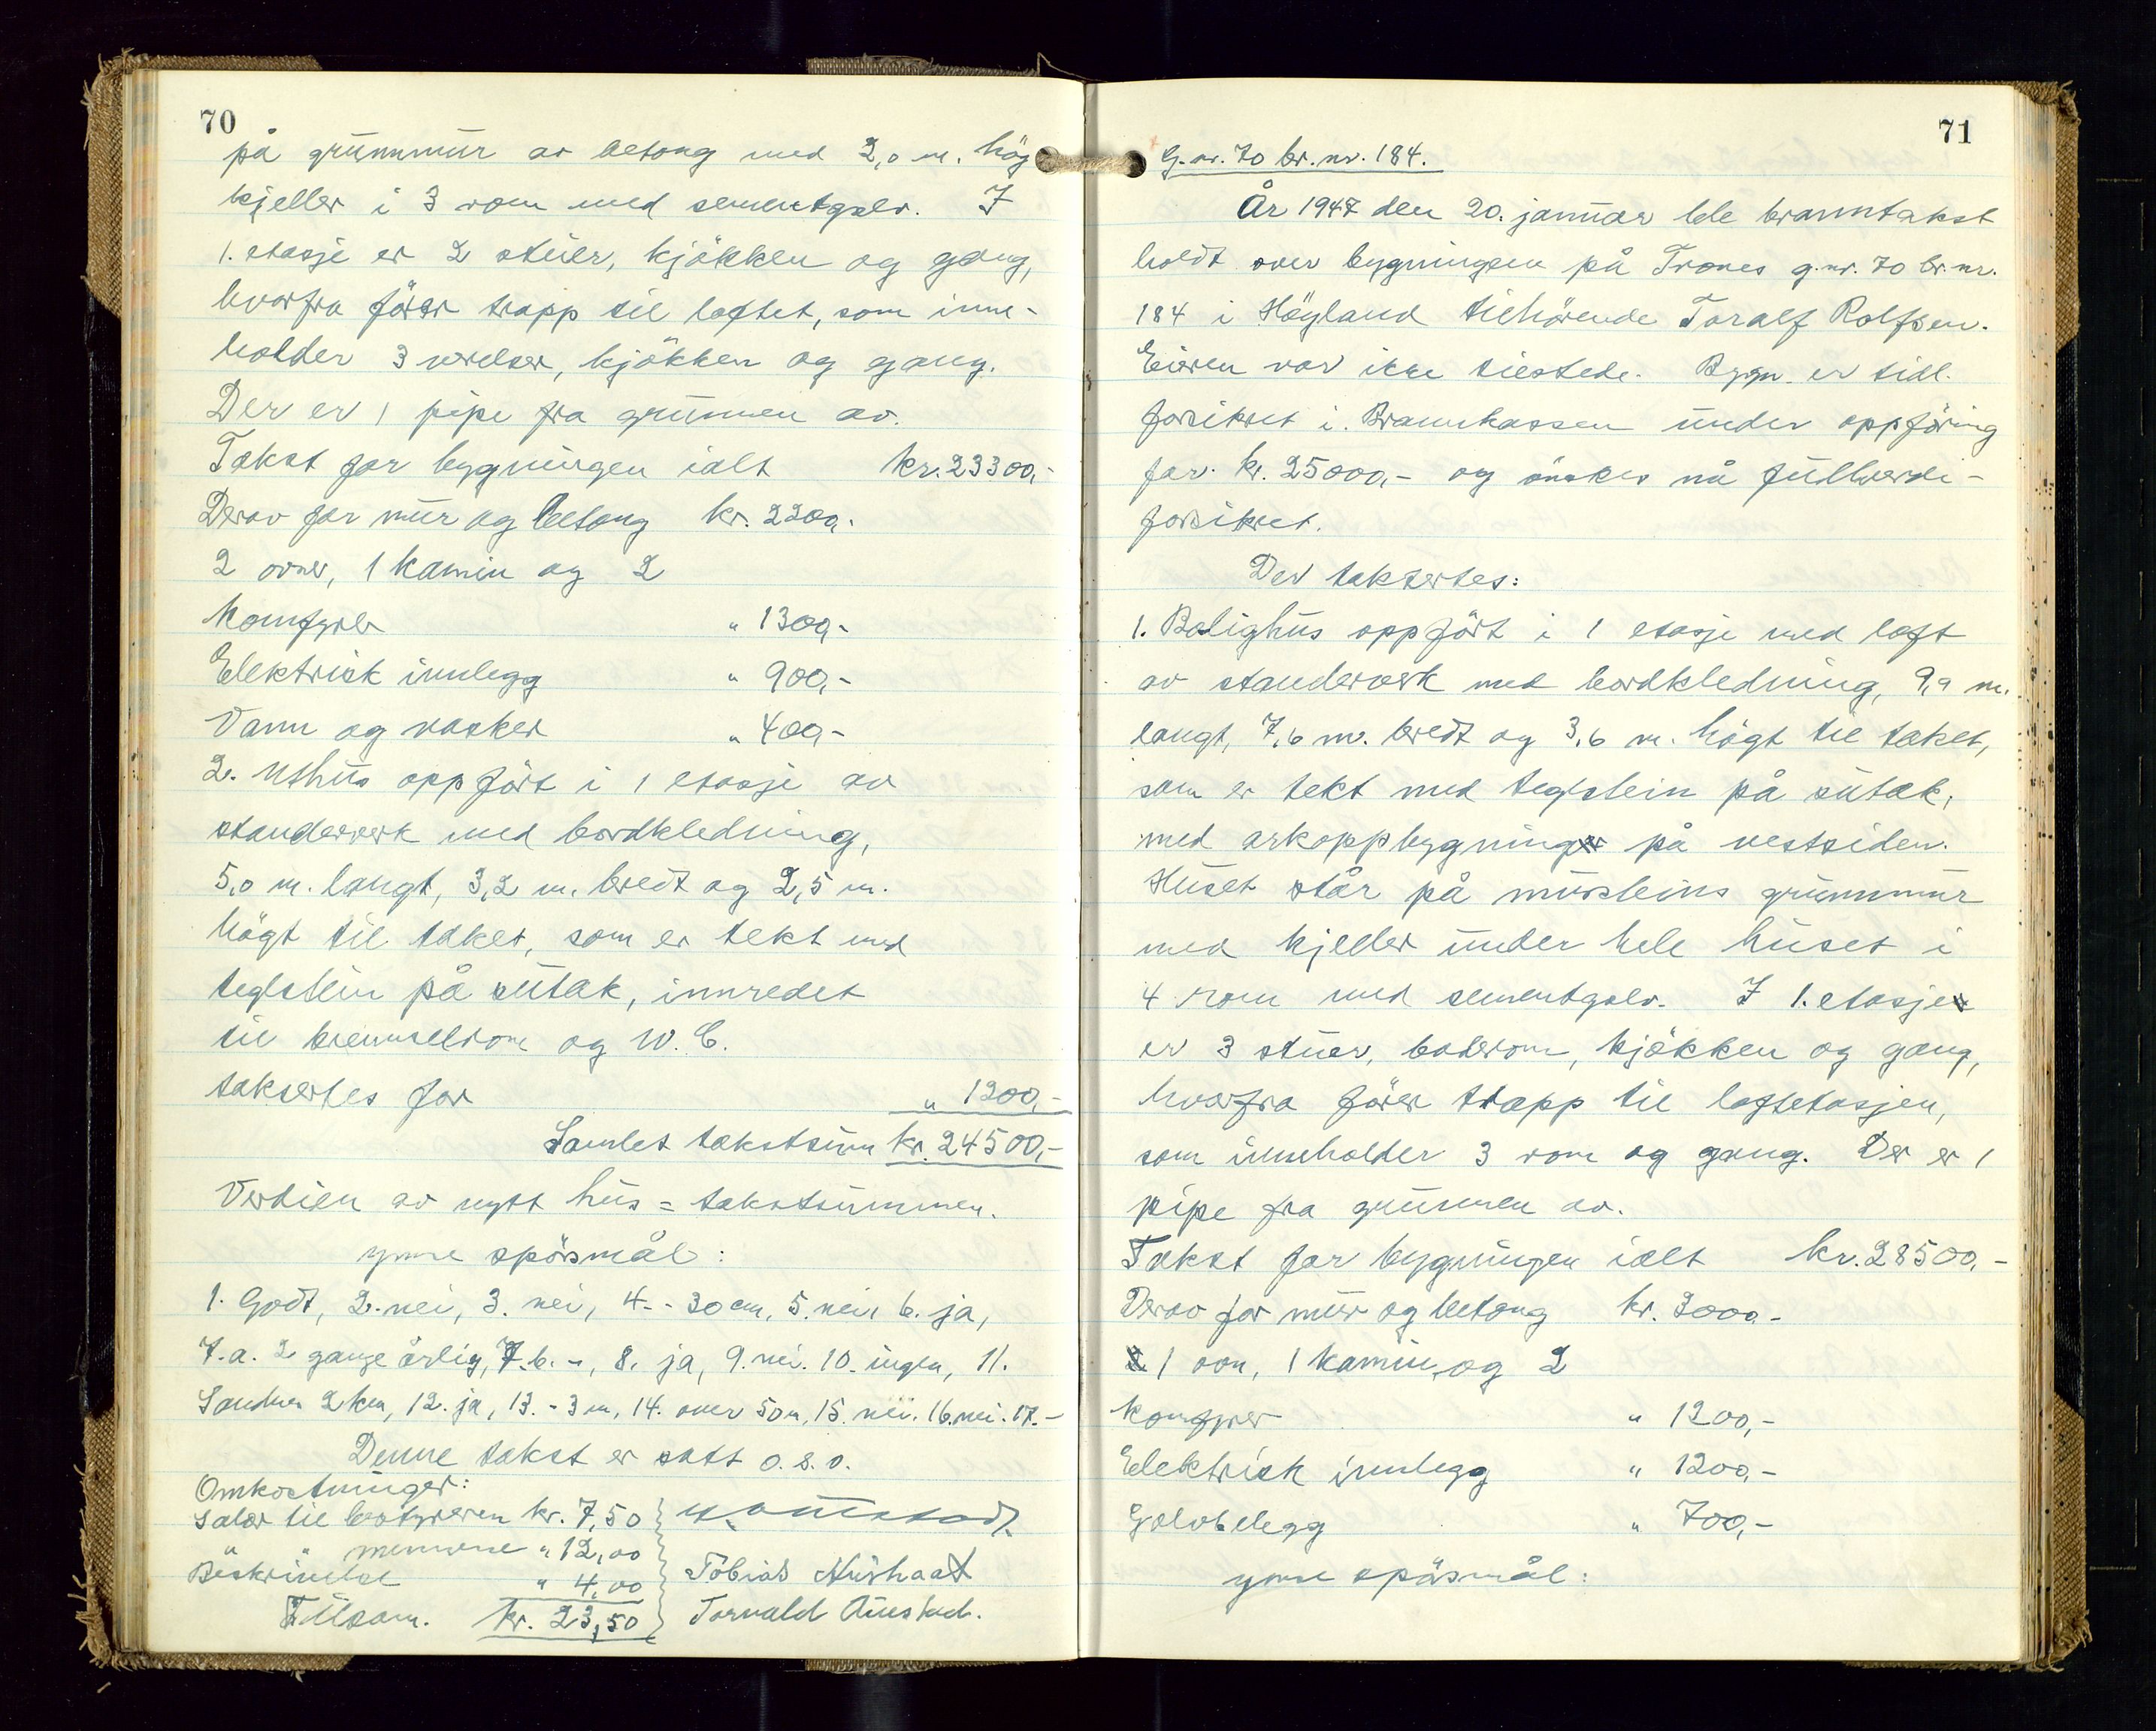 70
på grunnmur av betong med 2,0 m. høg
kjeller i 3 rom med sementgolv. I
1. etasje er 2 stuer, kjøkken og gang,
hvorfra fører trapp til loftet, som inne-
holder 3 verelser, kjøkken og gang.
Der er 1 pipe fra grunnen av.
Takst for bygningen ialt kr. 23300,-
Derav for mur og betong kr. 2200,-
2 ovner, 1 kamin og 2
komfyrer " 1300,-
Elektrisk innlegg " 900,-
Vann og vasker " 400,-
2. Uthus oppført i 1 etasje av
standerverk med bordkledning,
5,0 m. langt, 3,2 m. bredt og 2,5 m.
høgt til taket, som er tekt med
teglstein på sutak, innredet
til brennselrom og W.C.
taksertes for " 1200,-
Samlet takstsum kr. 24500,-
Verdien av nytt hus = takstsummen.
ymse spørsmål:
1. Godt, 2. nei, 3. nei, 4. - 30 cm, 5. nei, 6. ja,
7.a. 2 gange årlig, 7.b. -, 8. ja, 9. nei. 10. ingen, 11.
Sandnes 2 km, 12. ja, 13. - 3 m, 14. over 50 m, 15. nei. 16. nei. 17. -
Denne takst er satt o.s.v.
Omkostninger:
Salær til bestyreren kr. 7,50
" " mennene " 12,00
Beskrivelse " 4,00
Tilsam. kr. 23,50
Tobias
Torvald Austad.
71
G.nr. 70 br.nr. 184.
År 1947 den 20. januar ble branntakst
holdt over bygningen på Trones g.nr. 70 br.nr.
184 i Høyland tilhørende Toralf Rolfsen.
Eieren var ikke tilstede. Bygn. er tidl.
forsikret i Brannkassen under oppføring
for kr. 25000,- og ønskes nå fullverdi-
forsikret.
Der taksertes:
1. Bolighus oppført i 1 etasje med loft
av standerverk med bordkledning, 9,9 m.
langt, 7,6 m. bredt og 3,6 m. høgt til taket,
som er tekt med teglstein på sutak,
med arkoppbygning på vestsiden.
Huset står på mursteins grunnmur
med kjeller under hele huset i
4 rom med sementgolv. I 1. etasje
er 3 stuer, baderom, kjøkken og gang,
hvorfra fører trapp til loftetasjen,
som inneholder 3 rom og gang. Der er 1
pipe fra grunnen av.
Takst for bygningen ialt kr. 28500,-
Derav for mur og betong kr. 3000,-
1 ovn, 1 kamin, og 2
komfyrer " 1200,-
Elektrisk innlegg " 1200,-
Golvbelegg " 700,-
ymse spørsmål: